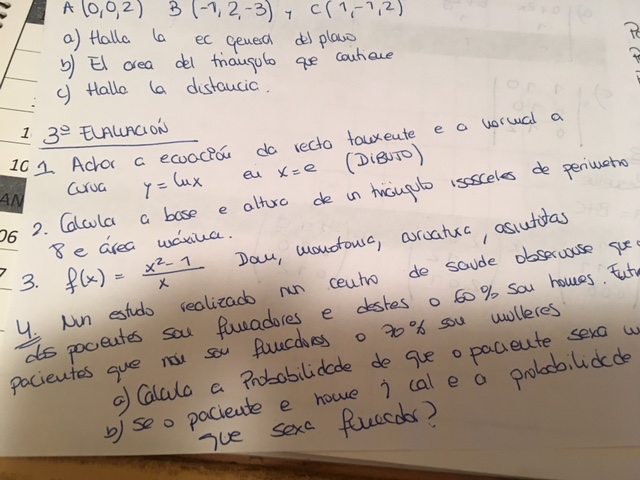 A (0,0,2) B (-1,2,-3) y C (1,-1,2)
a) Halla la ec general del plano
b) El area del triangulo que contiene
c) Halla la distancia.
3ª EVALUACIÓN
1. Achar a ecuación da recta tanxente e a normal a
curva y = lnx en x = e (DIBUXO)
2. Calcula a base e altura de un triángulo isosceles de perimetro
8 e área máxima.
3. f(x) = x²-1/x Dom, monotonia, curvatura, asintotas
4. Nun estudo realizado nun centro de saude observouse que
dos pacientes son fumadores e destes o 60% son homes. Entre
pacientes que non son fumadores o 70% son mulleres
a) Calcula a Probabilidade de que o paciente sexa
b) Se o paciente e home ¿ cal e a probabilidade
que sexa fumador?
1
10
AN
06
7